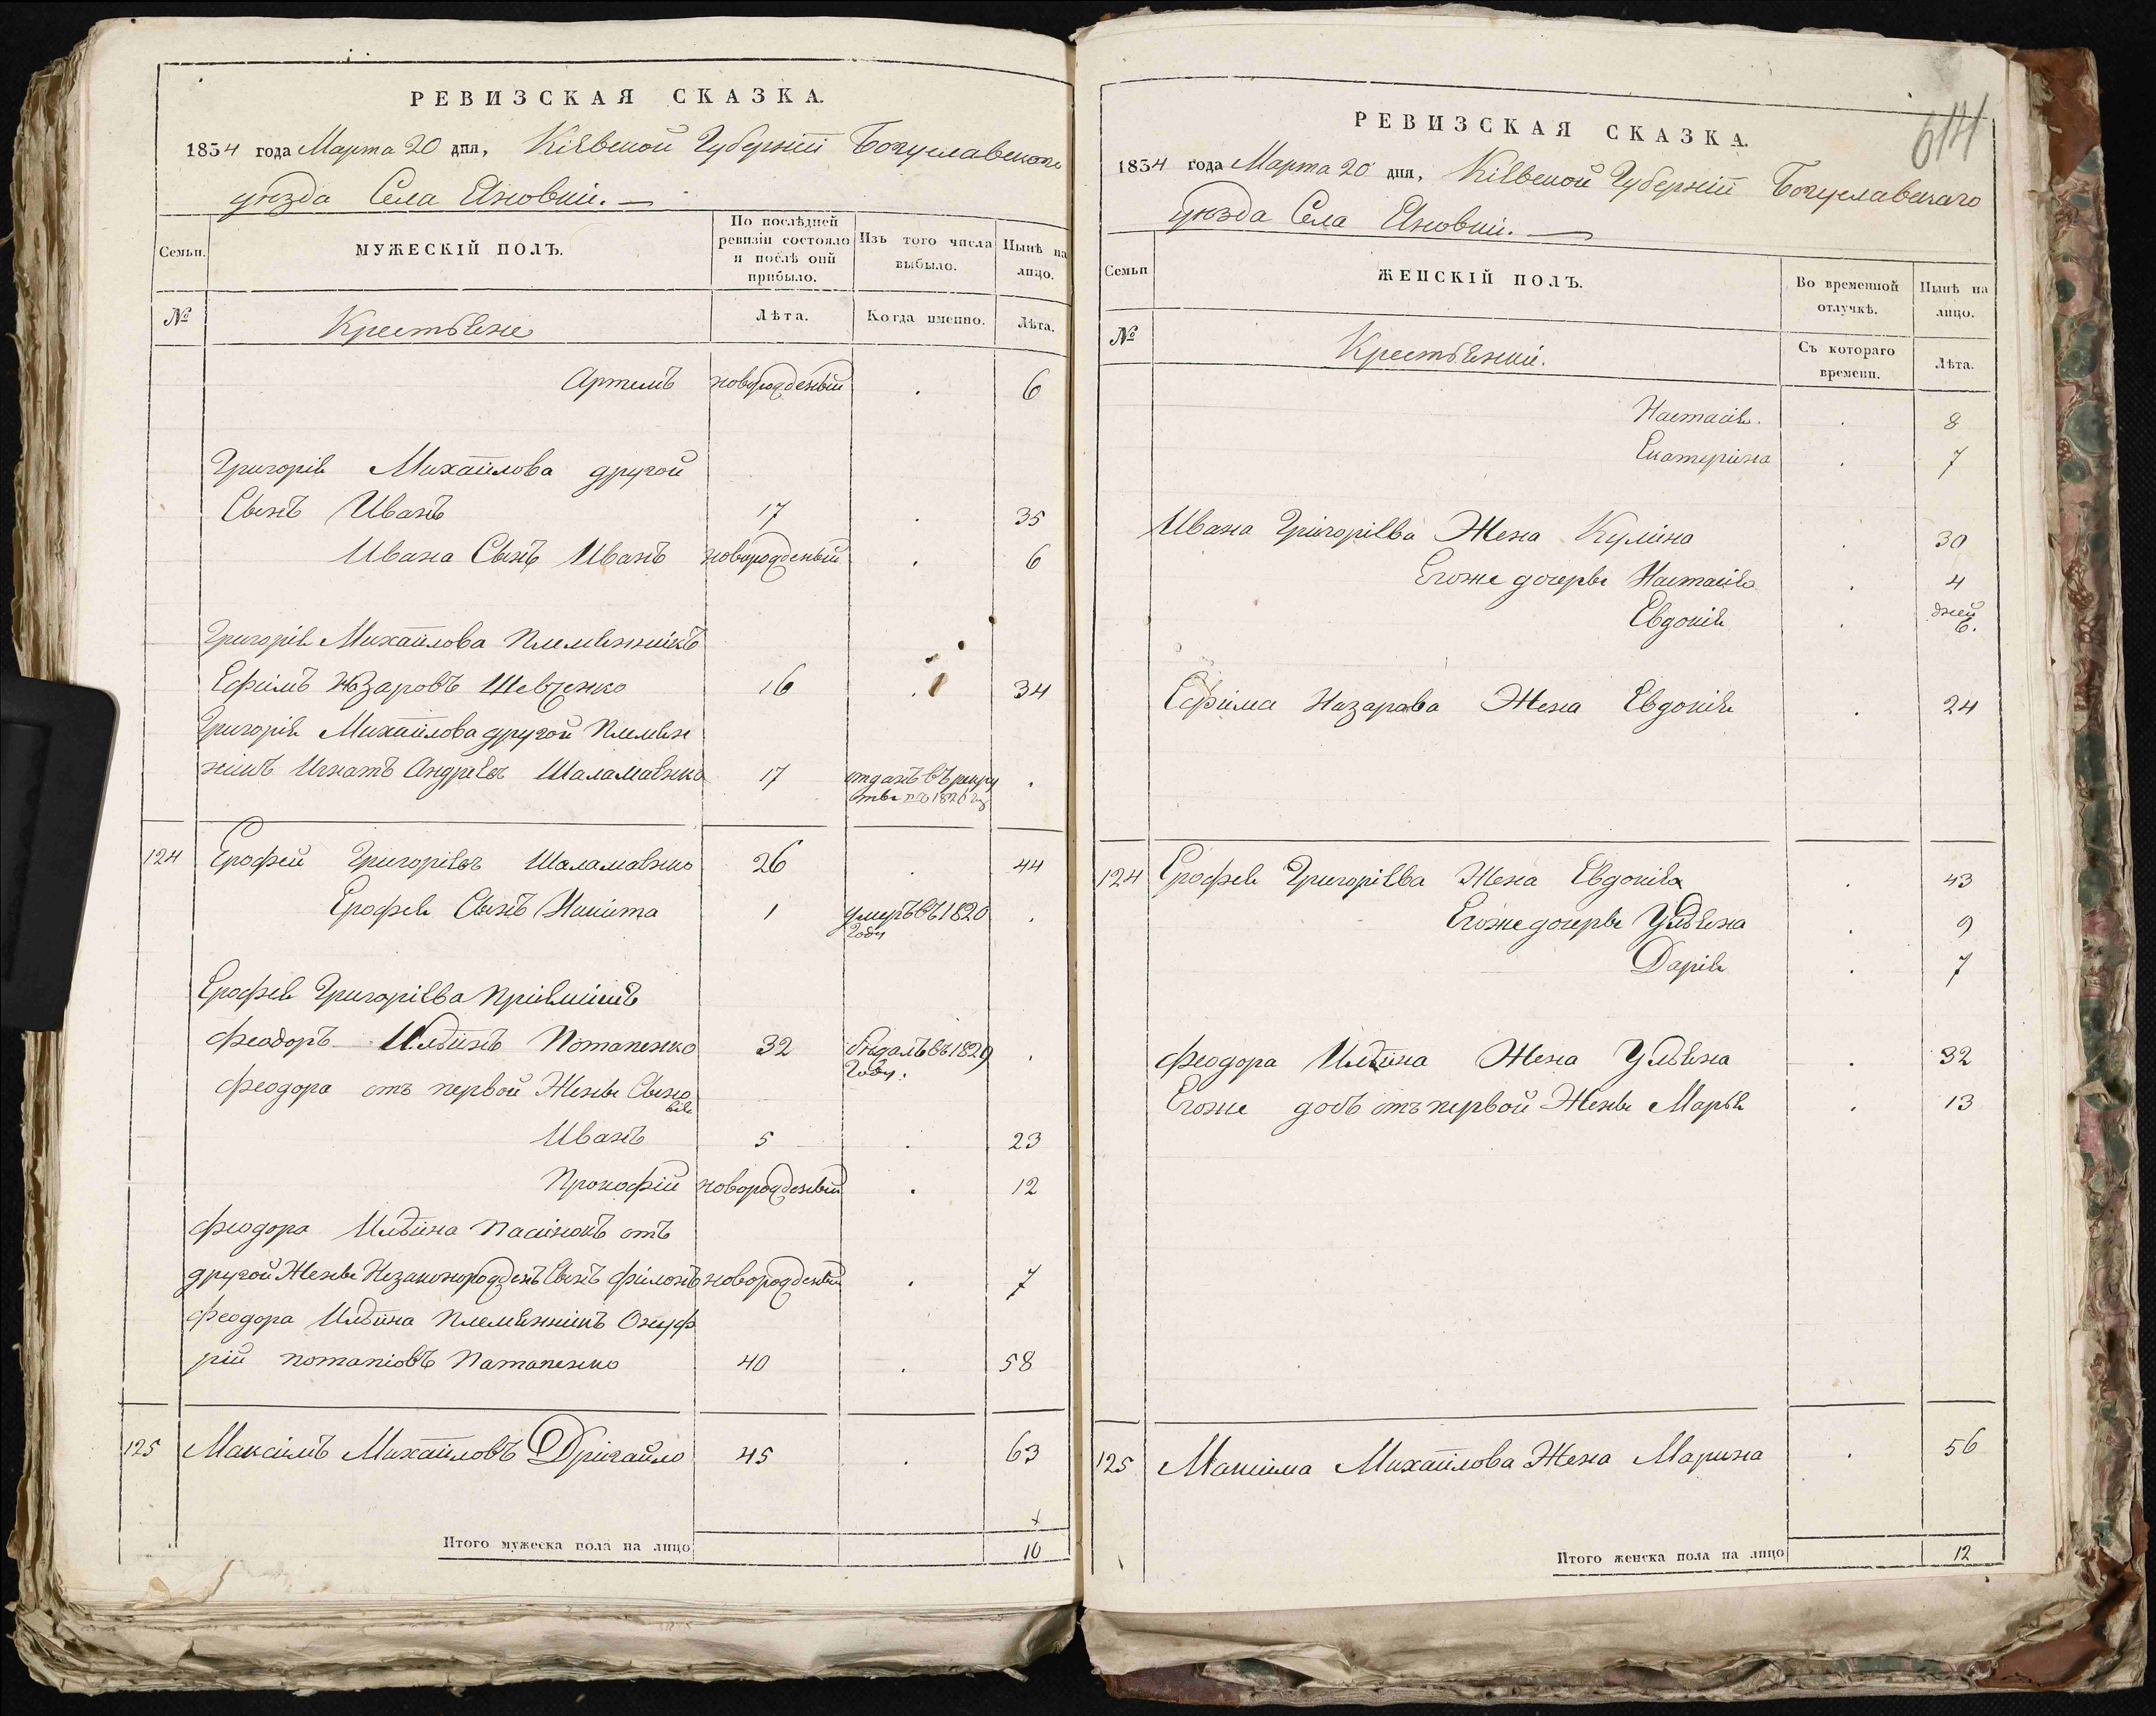 РЕВИЗСКАЯ СКАЗКА.
1834 года Марта 20 дня, Кіевской Губерніи Богуславскаго
уѣзда Села Яновки.
Семьи.
МУЖЕСКІЙ ПОЛЪ.
По послѣдней
ревизіи состояло
и послѣ оній
прибыло.
Изъ того числа
выбыло.
Нынѣ на
лицо.
№
Крестьяне
Лѣта.
Когда именно.
Лѣта.
Артемъ новорожденый . 6
Григорія Михайлова другой
Сынъ Иванъ 17 . 35
Ивана Сынъ Иванъ новорожденый . 6
Григорія Михайлова Племянникъ
Ефимъ Назаровъ Шевченко 16 . 34
Григорія Михайлова другой Племян
никъ Игнатъ Андреевъ Шаламаенко 17 отданъ въ рекру .
ты въ 1826 г
124 Ерофей Григоріевъ Шаламаенко 26 . 44
Ерофея Сынъ Никита 1 умеръ въ 1820 .
Году
Ерофея Григоріева Пріемишъ
Феодоръ Ильинъ Потапенко 32 въ 1829 .
Году.
Феодора отъ первой Жены Сыно
вія
Иванъ 5 . 23
Прокофій новорожденый . 12
Феодора Ильина Пасинокъ отъ
другой Жены Незаконорожденъ Сынъ Филонъ новорожденый . 7
Феодора Ильина Племянникъ Онуф
рій Потаповъ Патапенко 40 . 58
125 Максимъ Михайловъ Дригайло 45 . 63
Итого мужеска пола на лицо 10
614
РЕВИЗСКАЯ СКАЗКА.
1834 года Марта 20 дня, Кіевской Губерніи Богуславскаго
уѣзда Села Яновки.
Семьи
ЖЕНСКІЙ ПОЛЪ.
Во временной
отлучкѣ.
Нынѣ на
лицо.
№
Крестьянки.
Съ котораго
времени.
Лѣта.
Настасія . 8
Екатерина . 7
Ивана Григоріева Жена Кулина . 30
Егоже дочеры Настасія . 4
Евдокія . дней
6.
Ефима Назарава Жена Евдокія . 24
124 Ерофея Григоріева Жена Евдокія . 43
Егоже дочеры Ульяна . 9
Дарія . 7
Феодора Ильина Жена Ульяна . 32
Егоже дочь отъ первой Жены Марья . 13
125 Максима Михайлова Жена Марина . 56
Итого женска пола на лицо 12